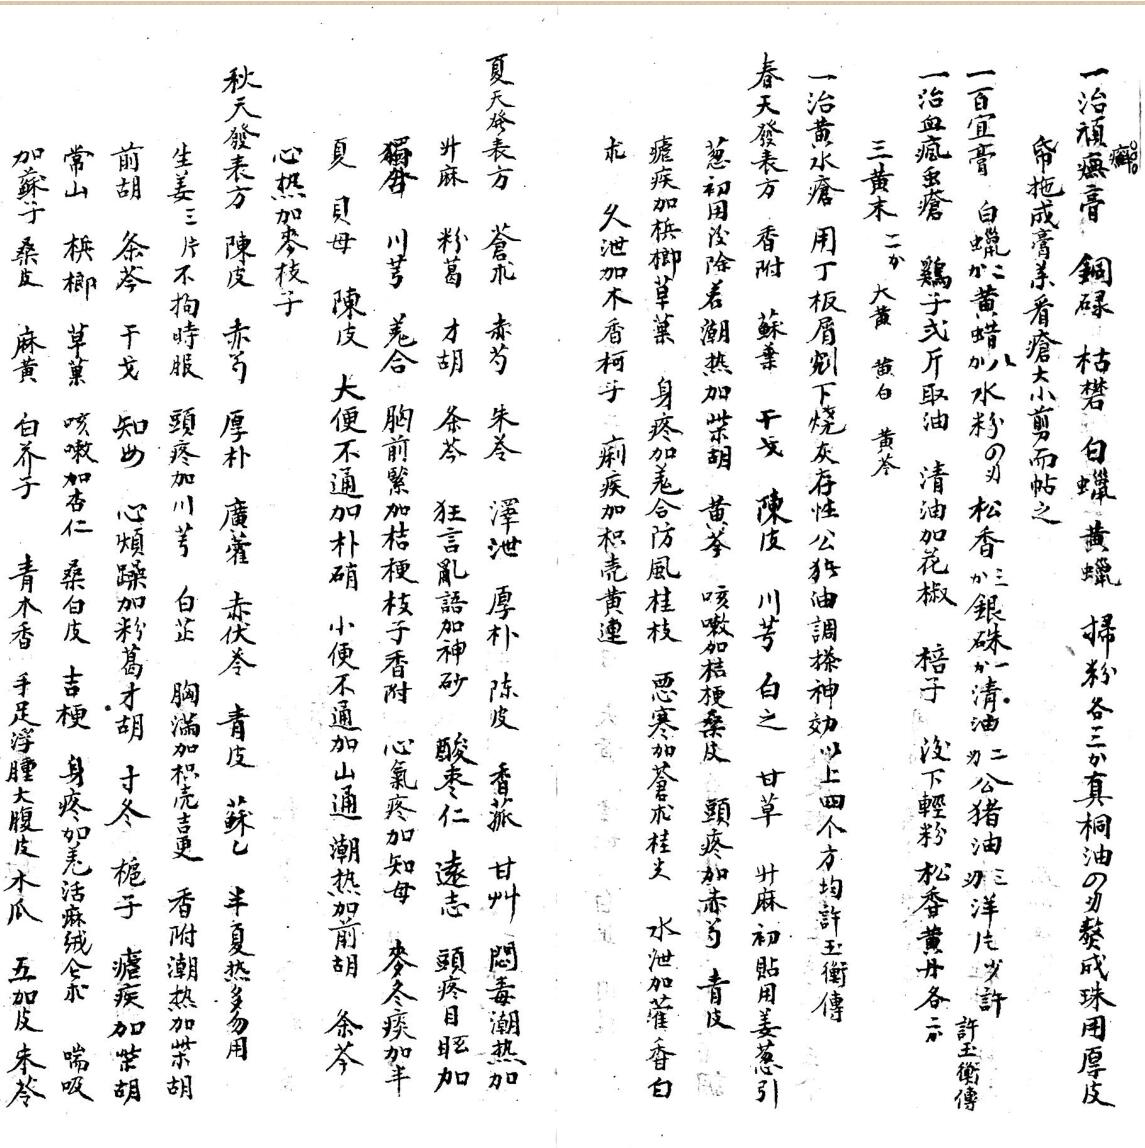 一治頑癣膏 銅碌 枯礬 白蠟 黄蠟 掃粉各三か真桐油の刄熬成珠用厚皮
帋拖成膏系看瘡大小剪而帖之
一百宜膏 白蠟か二黄蜡か八水粉の刄 松香か三銀硃か一清油刄二公猪油刄三洋片少許 許玉衡傳
一治血瘋虫瘡 鷄子弍斤取油 清油加花椒 棓子 没下輕粉 松香黄丹各二か
三黄末二か 大黄 黄白 黄芩
一治黄水瘡 用丁板屑剜下燒灰存性公猪油調搽神効以上四个方均許玉衡傳
春天發表方 香附 蘇葉 干戈 陳皮 川芎 白之 甘草 廾麻初貼用姜葱引
葱初用後除若潮热加柴胡 黄芩 咳嗽加桔梗桑皮 頭疼加赤芍 青皮
瘧疾加梹榔草菓 身疼加羗合防風桂枝 惡寒加蒼朮桂尖 水泄加藿香白
朮 久泄加木香柯子 痢疾加枳壳黄連
夏天發表方 蒼朮 赤芍 朱苓 澤泄 厚朴 陈皮 香菰 甘艸 悶毒潮热加
廾麻 粉葛 才胡 条芩 狂言亂語加神砂 酸枣仁 遠志 頭疼目眩加
獨活 川芎 羗合 胸前緊加桔梗枝子香附 心氣疼加知母 麥冬痰加半
夏 貝母 陳皮 大便不通加朴硝 小便不通加山通潮热加前胡 条芩
心热加麥枝子
秋天發表方 陳皮 赤芍 厚朴 廣藿 赤伏苓 青皮 蘇乙 半夏热多勿用
生姜三片不拘時服 頭疼加川芎 白芷 胸滿加枳壳吉更 香附潮热加柴胡
前胡 条芩 干戈 知母 心煩躁加粉葛才胡 寸冬 梔子 瘧疾加柴胡
常山 梹榔 草菓 咳嗽加杏仁 桑白皮 吉梗 身疼加羗活麻绒仓朮 喘吸
加蘇子 桑皮 麻黄 白芥子 青木香 手足浮腫大腹皮木瓜 五加皮朱苓